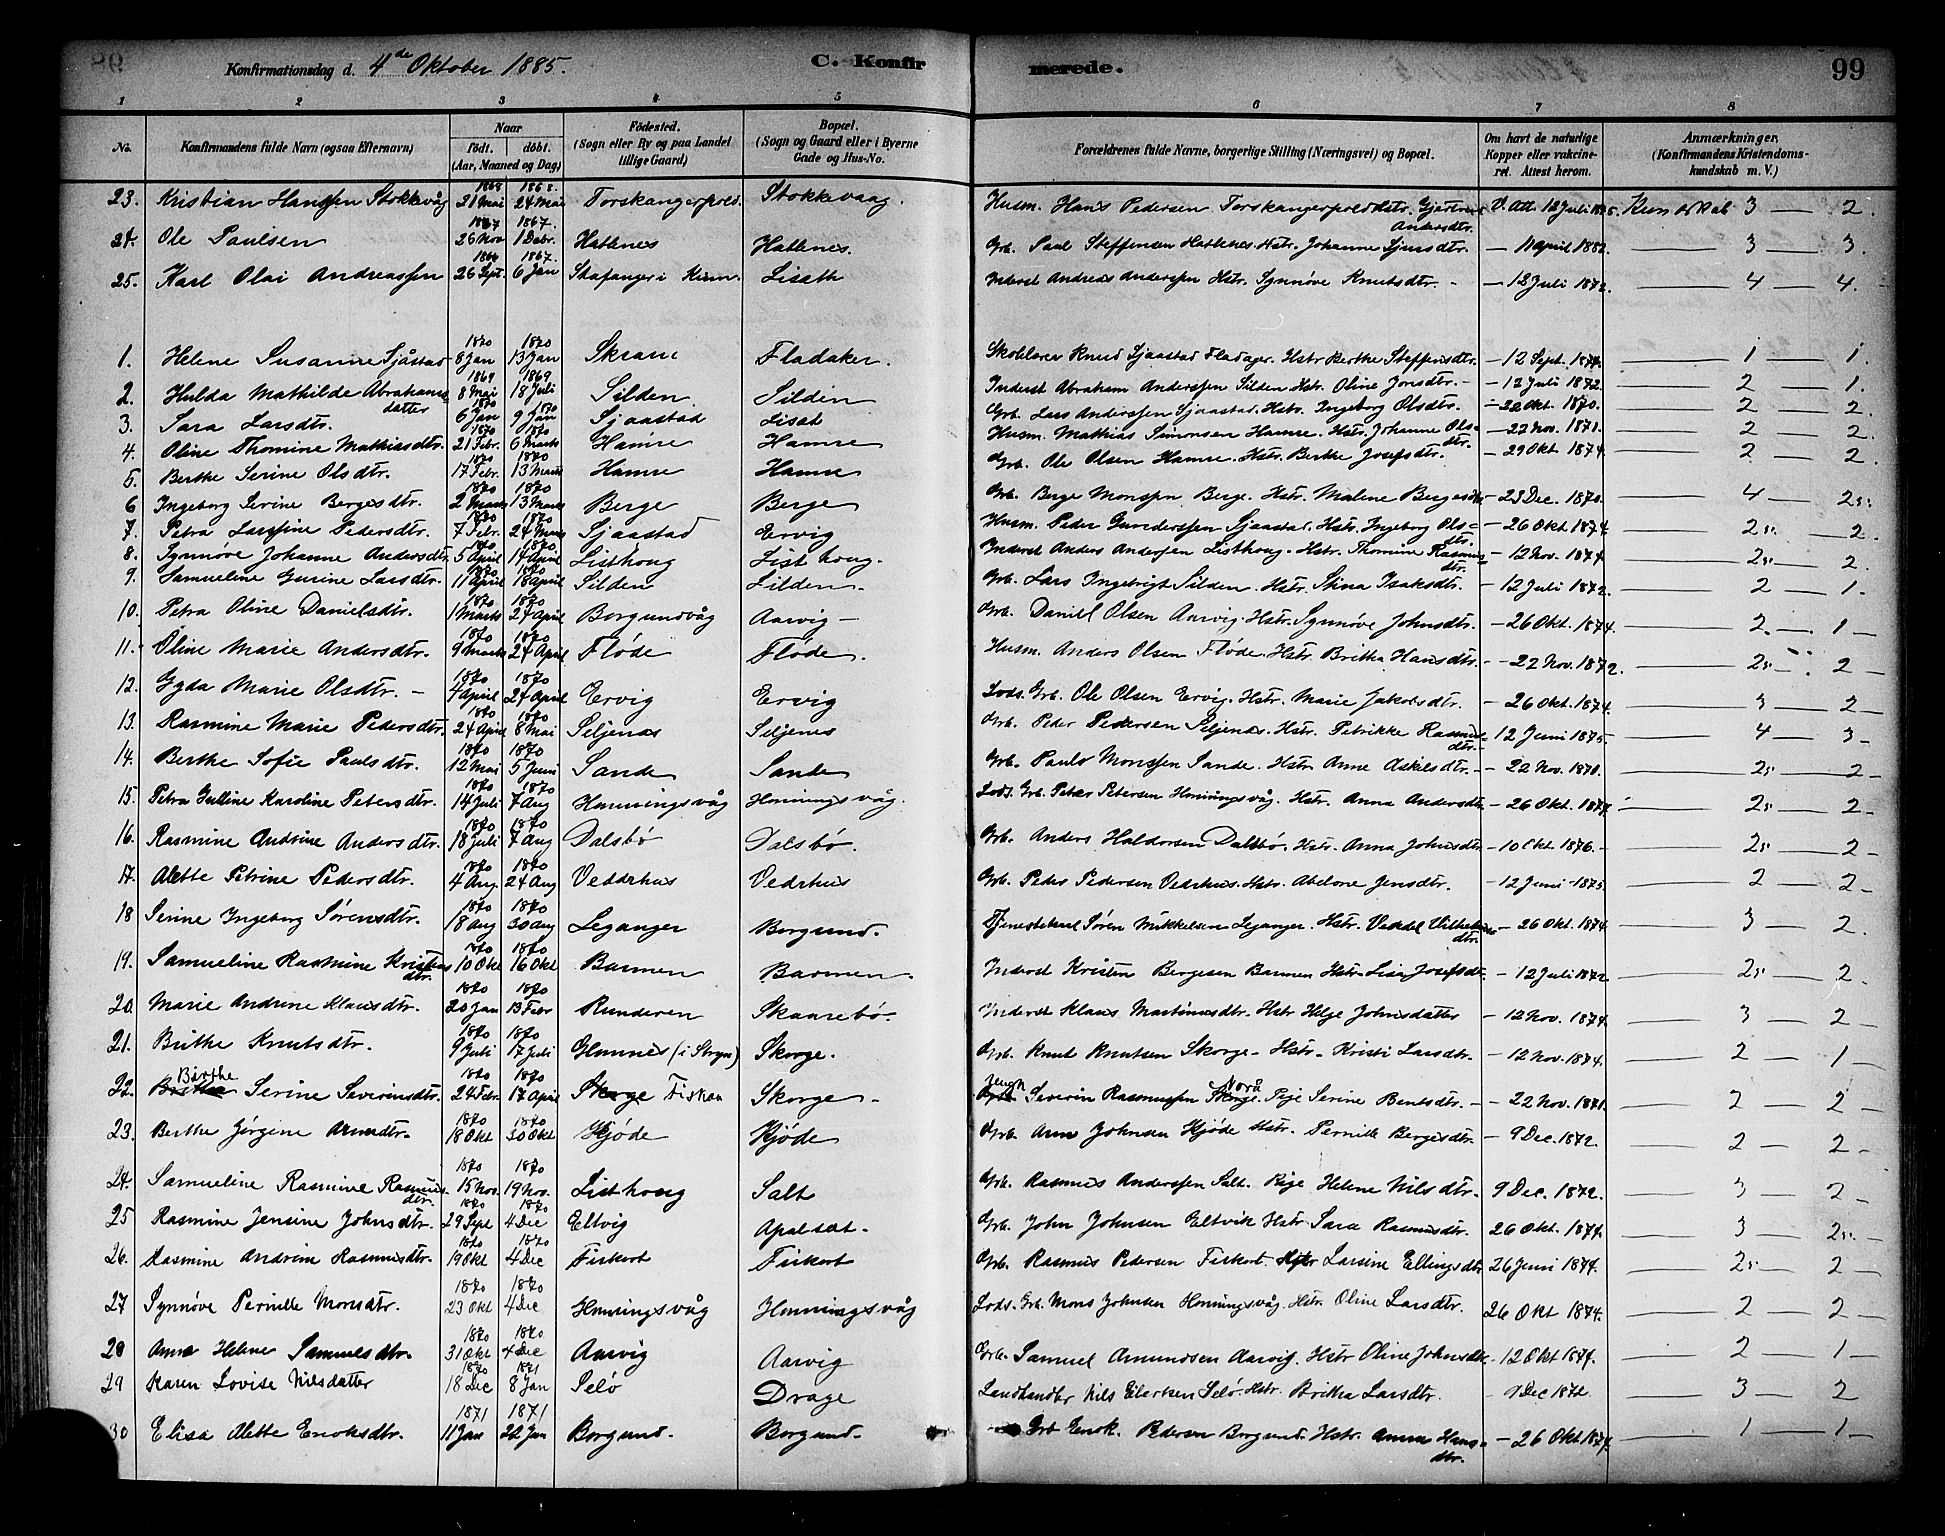 Konfirmationsdag d. 4de Oktober 1885. C. Konfirmerede. 99
1 2 3 4 5 6 7 8
No. Konfirmandens fulde Navn (ogsaa Efternavn) Naar født. døbt. (Aar, Maaned og Dag) Fødested. (Sogn eller By og paa Landet tillige Gaard) Bopæl. (Sogn og Gaard eller i Byerne Gade og Hus-No. Forældrenes fulde Navne, borgerlige Stilling (Næringsvei) og Bopæl. Om havt de naturlige Kopper eller vakcineret. Attest herom. Anmærkninger, (Konfirmandens Kristendomskundskab m. V.)
23. Kristian Hanssen Stokkevåg 1868 21 Mai 1868. 24 Mai Torskangerpold. Stokkevaag. Husm. Hans Pedersen Torskangerpold Hstr. Andersdtr. V. Att. 12 Juli Kundskab 3 — 2.
24. Ole Paulsen 1867 26 Nov 1867. 1 Decbr. Hatlenes Hatlenes. Grb. Paul Steffensen Hatlenes. Hstr. Johanne Sjursdtr. — 11 April 1882. — 3 — 3.
25. Karl Olai Andreassen 1866 26 Sept. 1867. 6 Jan Skafanger i Kinn. Liseth Inderst Andreas Anderssen Hstr. Synnøve Knutsdtr. — 12 Juli 1872. — 4 — 4.
1. Helene Susanne Sjåstad 1870 8 Jan 1870 13 Jan Skram Fladaker. Skolelærer Knud Sjaastad Fladager. Hstr Berthe Steffensdtr. — 12 Sept. 1874. — 1 — 1.
2. Hulda Mathilde Abrahamsdatter 1869 8 Mai 1869 18 Juli Silden Silden Inderst Abraham Anderssen Silden Hstr. Oline Jonsdtr. — 12 Juli 1872. — 2 — 1.
3. Sara Larsdtr. 1870 6 Jan 1870 9 Jan Sjaastad Liset Grb. Lars Anderssen Sjaastad. Hstr. Ingeborg Olsdtr. — 22 Okt. 1870. — 2 — 2.
4. Oline Thomine Mathiasdtr. 1870 21 Febr. 1870 6 Marts Hamre Hamre Husm. Mathias Simonsen Hamre. Hstr. Johanne Olsdtr. — 22 Nov. 1871. — 2 — 2.
5. Berthe Serine Olsdtr. 1870 17 Febr. 1870 13 Marts Hamre Hamre Grb. Ole Olsen Hamre. Hstr. Berthe Josefsdtr. — 29 Okt 1874. — 2 — 2.
6 Ingeborg Serine Bergesdtr. 1870 2 Marts 1870 13 Marts Berge Berge Grb. Berge Monssen Berge. Hstr. Malene Bergesdtr — 23 Dec. 1870. — 4 — 2s.
7. Petra Larssine Pedersdtr. 1870 7 Febr. 1870 24 Marts Sjaastad Ervig Husm. Peder Gunderssen Sjaastad. Hstr. Ingeborg Olsdtr. — 26 Okt 1874. — 2s. — 2.
8. Synnøve Johanne Andersdtr 1870 5 April 1870. 14 April Listhoug Listhoug. Inderst Anders Andersen Listhoug. Hstr. Thomine Rasmusdtr. — 12 Nov. 1874. — 2s. — 2.
9. Samueline Gurine Larsdtr. 1870 11 April 1870 18 April Silden Silden. Grb. Lars Ingebrigt Silden. Hstr. Stina Isaksdtr. — 12 Juli 1872. — 2 — 1.
10. Petra Oline Danielsdtr. 1870 1 Marts 1870 24 April Borgundvåg Aarvig — Grb. Daniel Olsen Aarvig. Hstr. Synnøve Johnsdtr. — 26 Okt. 1874. — 2. — 1 —
11. Oline Marie Andersdtr. 1870 9 Marts 1870. 24 April Fløde Fløde. Husm. Anders Olsen Fløde. Hstr. Britha Hansdtr. — 22 Nov. 1872. — 2s. — 2 —
12. Gyda Marie Olsdtr. — 1870 4 April 1870 24 April Ervig Ervig Lods. Grb. Ole Olsen Ervig. Hstr. Marie Jakobsdtr. — 26 Okt. 1874. — 3 — 2 —
13. Rasmine Marie Pedersdtr. 1870 24 April 1870 8 Mai Seljenes Seljenes Grb. Peder Pedersen Seljenes. Hstr. Petrikke Rasmusdtr. — 12 Juni 1875. — 4 — 3 —
14. Berthe Sofie Paulsdtr. 1870 12 Mai 1870 5 Juni Sande Sande Grb. Paulo Monssen Sande. Hstr. Anne Askilsdtr. — 22 Nov. 1870. — 2s — 2 —
15. Petra Gulline Karoline Petersdtr. 1870 14 Juli 1870 7 Aug Honningsvåg Honningsvåg. Lods. Grb. Peter Petersen Honningsvåg. Hstr. Anna Andersdtr. — 26 Okt. 1874. — 2s — 2 —
16. Rasmine Andrine Andersdtr. 1870 18 Juli 1870 7 Aug Dalsbø Dalsbø. Grb. Anders Haldorsen Dalsbø. Hstr. Anna Johnsdtr — 10 Okt. 1876. — 2s. — 2 —
17. Alette Petrine Pedersdtr. 1870 4 Aug. 1870 24 Aug Vedrhus Vedrhus Grb. Peder Pedersen Vedrhus. Hstr. Abelone Jensdtr. — 12 Juni 1875. — 2 — 2 —
18 Serine Ingeborg Sørensdtr. 1870 18 Aug 1870 30 Aug Leganger Borgund. Tjenestekarl Søren Mikkelsen Leganger. Hstr. — 26 Okt. 1874. — 3 — 2.
19. Samueline Rasmine Kristensdtr. 1870 10 Okt 1870 16 Okt Barmen Barmen. Inderst Kristen Bergesen Barmen Hstr. Lisa Josefsdtr. — 12 Juli 1872 — 2s — 2
20. Marie Andrine Klausdtr. 1870 20 Jan 1870 13 Febr Runderen Skaarebø. Inderst Klaus Martinusdtr. Hstr Helje Johnsdatter — 12 Nov. 1874. — 3 — 2 —
21. Brithe Knutsdtr. 1870 9 Juli 1870 17 Juli Glomnes (i Stryn) Skorge. Grb. Knut Knutsen Skorge — Hstr. Kristi Larsdtr. — 12 Nov. 1874. — 2 — 1 —
22. Berthe Serine Severinsdtr. 1870 24 Febr. 1870 17 April Skorge Fiskaa Skorge — Ungk Severin Rasmussen Skorge Vorå Pige Serine Bentsdtr. — 22 Nov. 1871. — 2 — 2 —
23. Berthe Jørgine Arnedtr. 1870 18 Okt 1870 30 Okt Kjøde Kjøde Grb. Arne Johnsen Kjøde Hstr. Pernille Bergesdtr. — 9 Dec. 1872. — 2 — 2 —
24. Samueline Rasmine Rasmusdtr. 1870 15 Nov. 1870. 19 Nov. Listhoug Salt Grb. Rasmus Anderssen Salt. Pige Helene Nilsdtr. 9 Dec. 1872. — 3 — 2 —
25 Rasmine Jensine Johnsdtr. 1870 29 Sept 1870 4 Dec Eltvig Apalset. Grb. John Johnsen Eltvik Hstr Sara Rasmusdtr. 26 Okt. 1874. — 3 — 2s. —
26. Rasmine Andrine Rasmusdtr. 1870 19 Okt 1870 4 Dec Tiskort Tiskort Grb. Rasmus Pedersen Tiskort. Hstr Larsine Ellingsdtr 26 Juni 1874. — 2s — 2 —
27 Synnøve Pernille Monsdtr. 1870 23 Okt 1870 4 Dec Honningsvåg Honningsvåg Lods. Grb. Mons Johnsen Honningsvåg. Hstr. Oline Larsdtr. 26 Okt 1874. — 2 — 2 —
28 Anne Helene Samuelsdtr. 1870 31 Okt 1870 4 Dec Aarvig Aarvig Grb. Samuel Amundsen Aarvig. Hstr Oline Johnsdtr — 12 Okt 1874. — 2 — 1 —
29 Karen Lovise Nilsdatter 1870 18 Dec 1871 8 Jan Selø Drage Landhandler Nils Eilertsen Selø. Hstr. Britha Larsdtr. — 9 Dec 1872. — 3 — 2
30 Elisa Alette Enoksdtr. 1871 11 Jan 1871 22 Jan Borgund. Borgund. Grb Enok. Pedersen Borgund. Hstr. Anna Hansdtr. — 26 Okt 1874. — 1 — 1 —